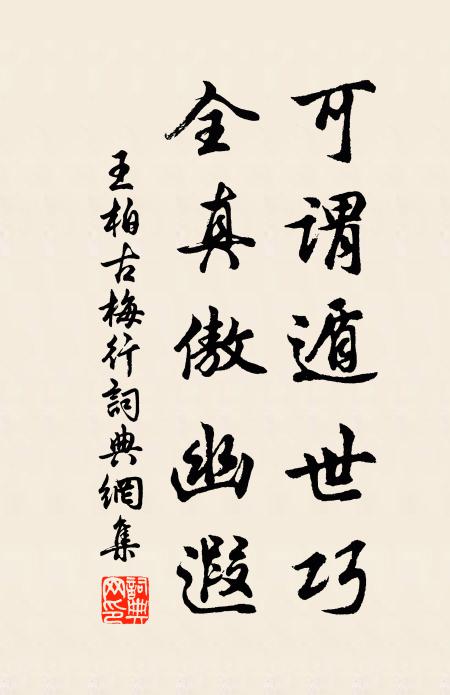 可謂遁世巧
全真傲幽遐
王柏古梅行詞典網集
詞典网印